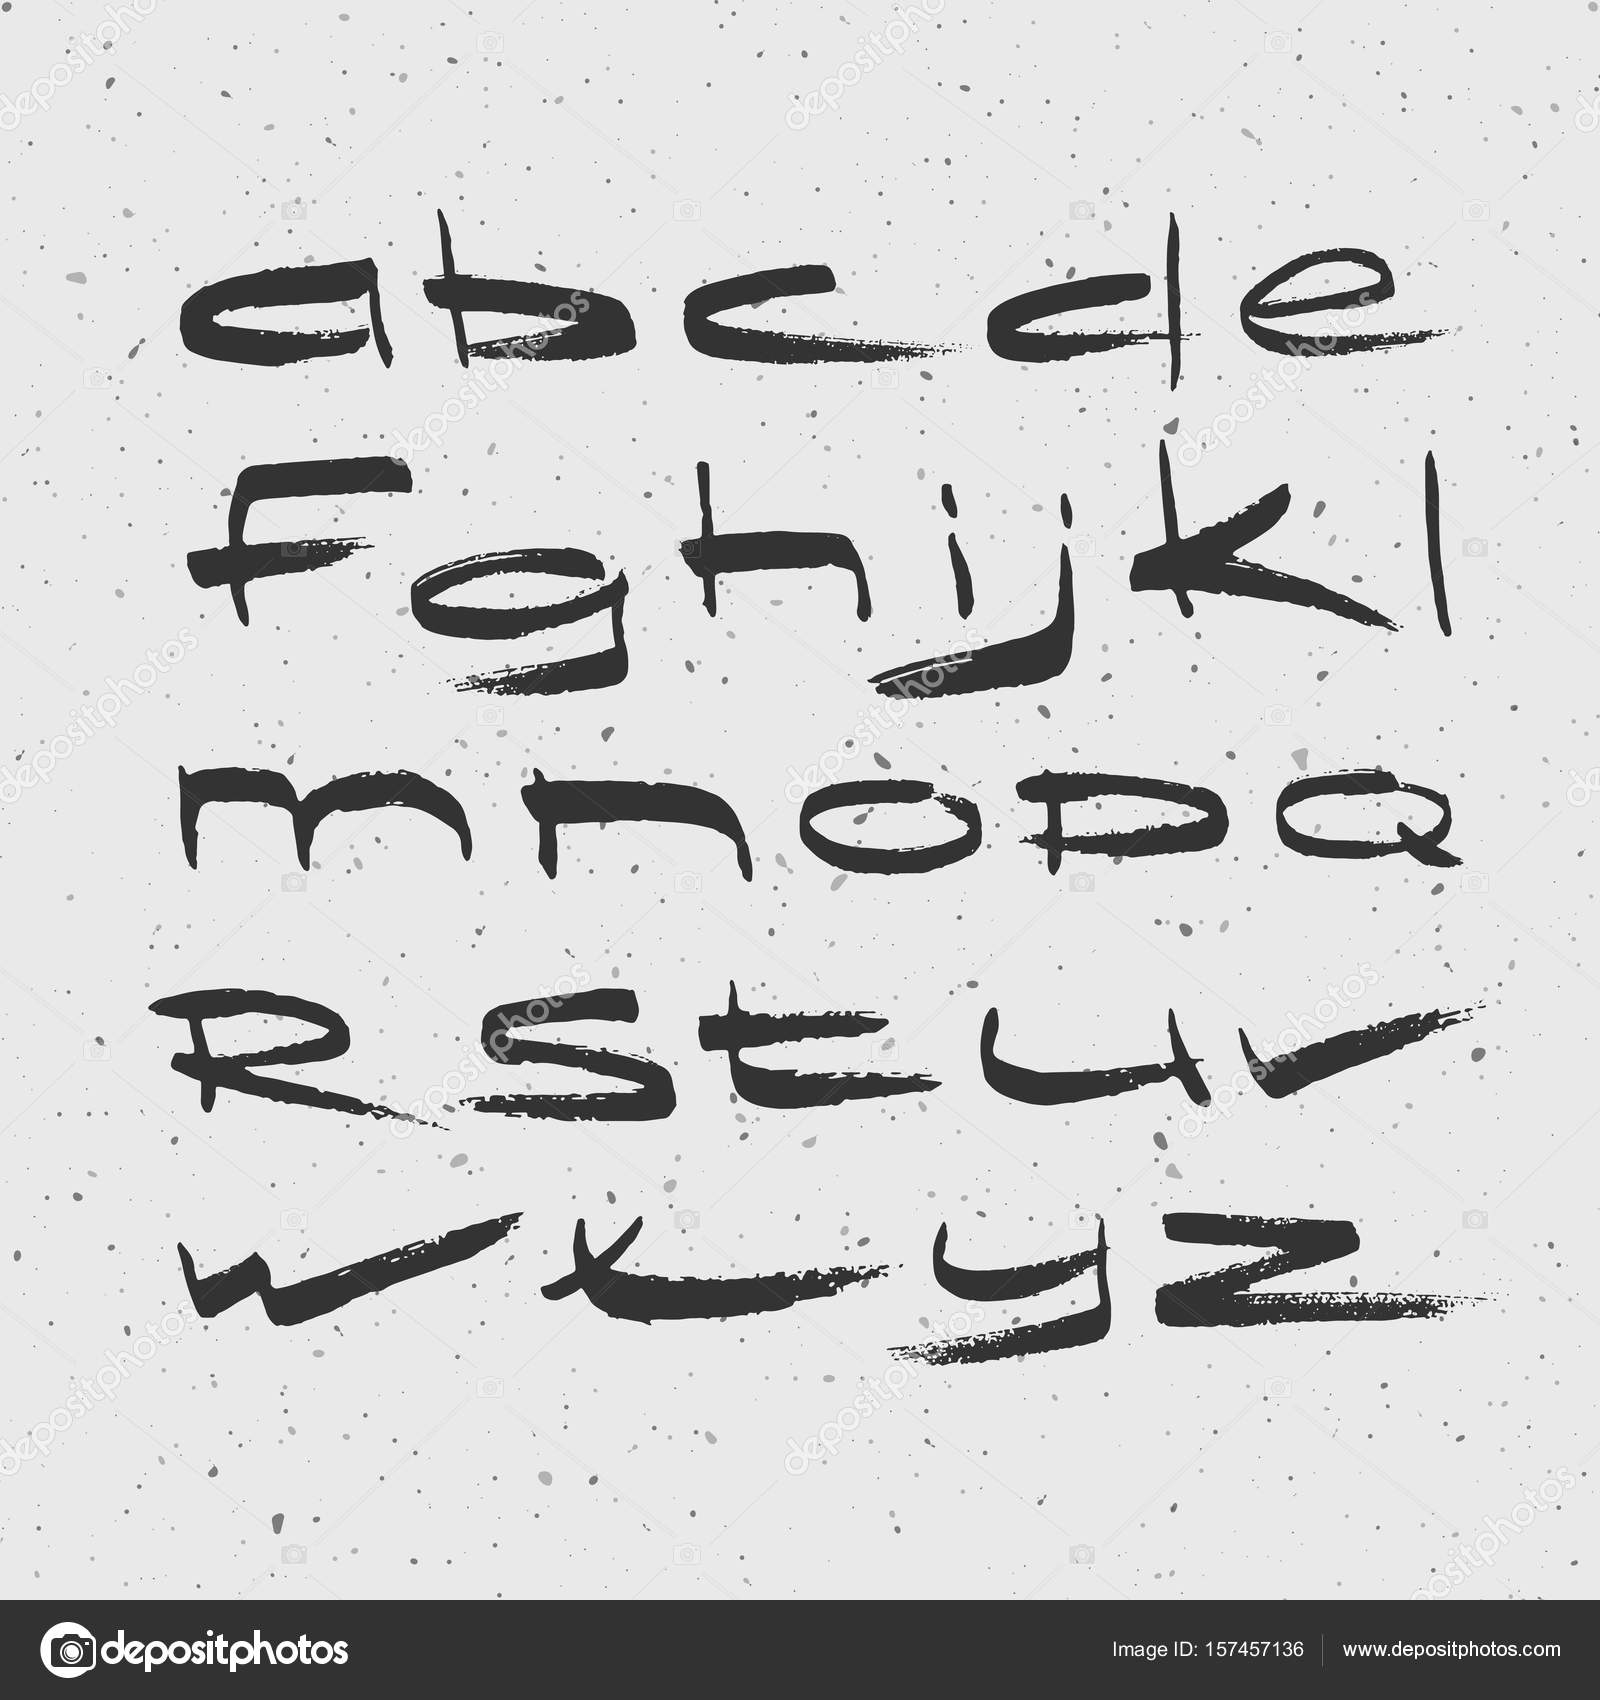 a b c d e
F g h i j k l
m n o p Q
R s t u v
w x y z
depositphotos
Image ID: 157457136 www.depositphotos.com